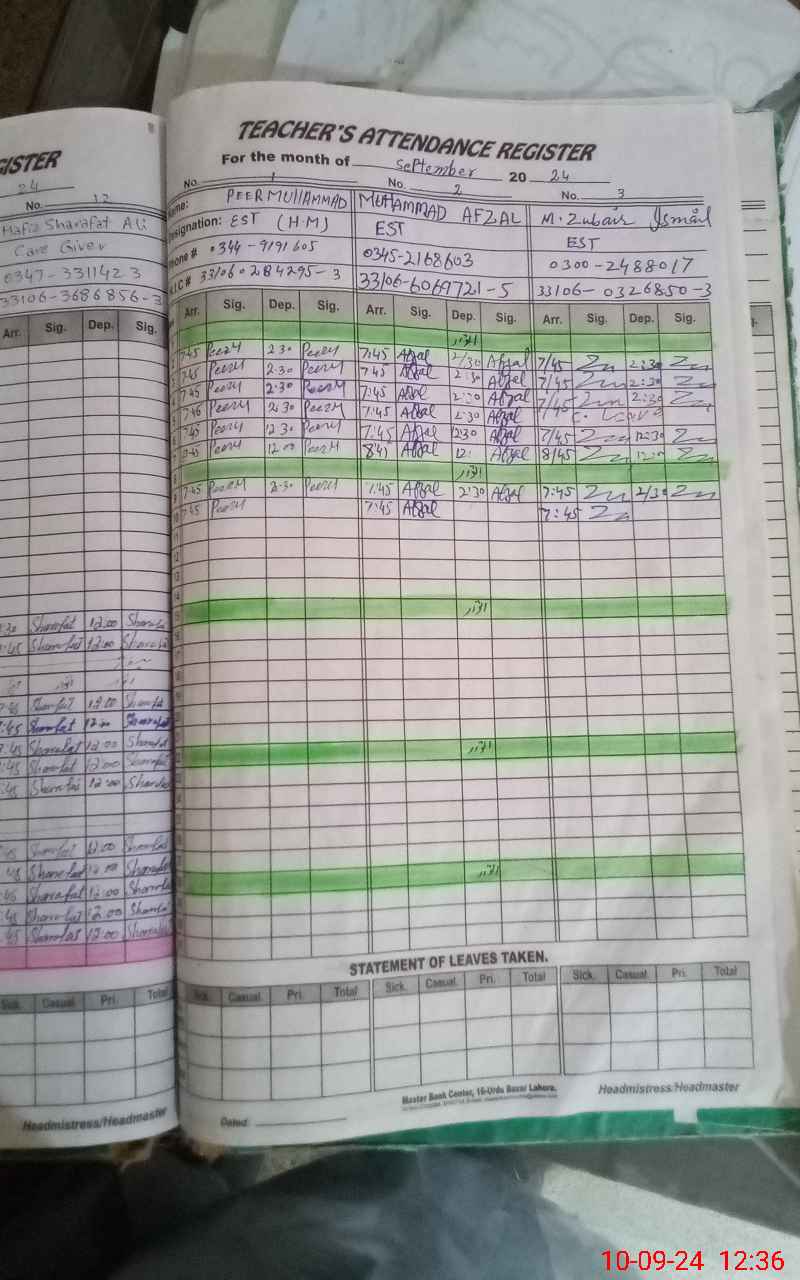 GISTER
24
No. 12
Hafiz Sharafat Ali
Care Giver
0347-3311423
33106-3686856-3
Arr. Sig. Dep. Sig.
Sharafat 12:00 Sharafat
:45 Sharafat 12:00 Sharafat
Sharafat 12:00 Sharafat
:45 Sharafat 12:00 Sharafat
7:45 Sharafat 12:00 Sharafat
:45 Sharafat 12:00 Sharafat
:45 Sharafat 12:00 Sharafat
:45 Sharafat 12:00 Sharafat
45 Sharafat 12:00 Sharafat
45 Sharafat 12:00 Sharafat
45 Sharafat 12:00 Sharafat
45 Sharafat 12:00 Sharafat
Sick. Casual. Pri. Total
Headmistress/Headmaster
TEACHER'S ATTENDANCE REGISTER
For the month of September 20 24
No. 1 No. 2 No. 3
Name: PEER MUHAMMAD MUHAMMAD AFZAL M. Zubair Ismail
Designation: EST (H.M) EST EST
Phone # 0344-9191605 0345-2168603 0300-2488017
N.I.C # 33106 0284295-3 33106-6069721-5 33106-0326850-3
Arr. Sig. Dep. Sig. Arr. Sig. Dep. Sig. Arr. Sig. Dep. Sig.
اتوار
7:45 PeerM 2:30 PeerM 7:45 Afzal 2/30 Afzal 7/45 2:30
7:45 PeerM 2:30 PeerM 7:45 Afzal 2:30 Afzal 7/45 2:30
7:45 PeerM 2:30 PeerM 7:45 Afzal 2:30 Afzal 7/45 2:30
7:45 PeerM 2:30 PeerM 7:45 Afzal 2:30 Afzal C. Leave
7:45 PeerM 12:30 PeerM 7:45 Afzal 12:30 Afzal 7/45 12:30
PeerM 12:00 PeerM Afzal 12: Afzal 8/45 12:00
اتوار
7:45 PeerM 2:30 PeerM 7:45 Afzal 2:30 Afzal 7:45 2/30
7:45 PeerM 7:45 Afzal 7:45
اتوار
اتوار
اتوار
STATEMENT OF LEAVES TAKEN.
Sick. Casual. Pri. Total Sick. Casual. Pri. Total Sick. Casual. Pri. Total
Master Book Center, 16-Urdu Bazar Lahore.
Dated: Headmistress/Headmaster
10-09-24 12:36